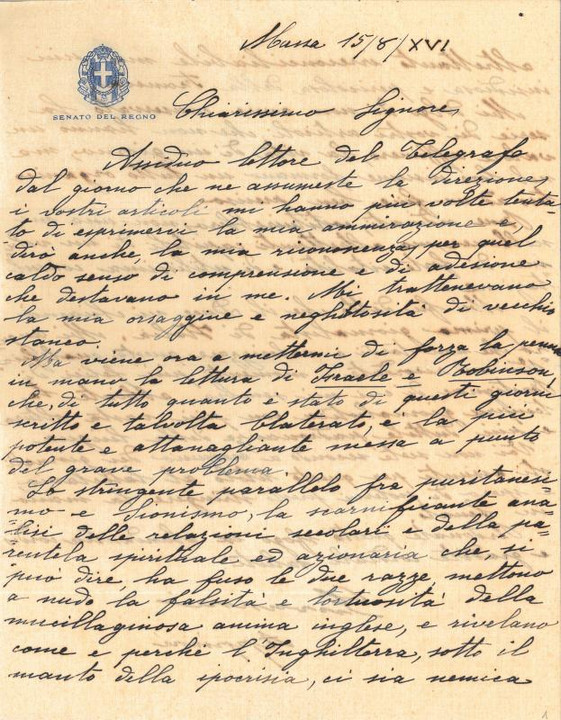 Massa 15/8/XVI
SENATO DEL REGNO
Chiarissimo Signore,
Assiduo lettore del Telegrafo
dal giorno che ne assumeste la direzione,
i vostri articoli mi hanno più volte tenta-
to di esprimervi la mia ammirazione e,
dirò anche, la mia riconoscenza, per quel
caldo senso di comprensione e di adesione
che destavano in me. Mi trattenevano
la mia orsaggine e neghittosità di vecchio
stanco.
Ma viene ora a mettermi di forza la penna
in mano la lettura di Israele e Robinson,
che, di tutto quanto è stato di questi giorni
scritto e talvolta blaterato, è la più
potente e attanagliante messa a punto
del grave problema.
Lo stringente parallelo fra puritanesi=
mo e Sionismo, la scarnificante ana=
lisi delle relazioni secolari e della pa=
rentela spirituale ed azionaria che, si
può dire, ha fuso le due razze, mettono
a nudo la falsità e tortuosità della
mucillaginosa anima inglese, e rivelano
come e perchè l'Inghilterra, sotto il
manto della ipocrisia, ci sia nemica
1